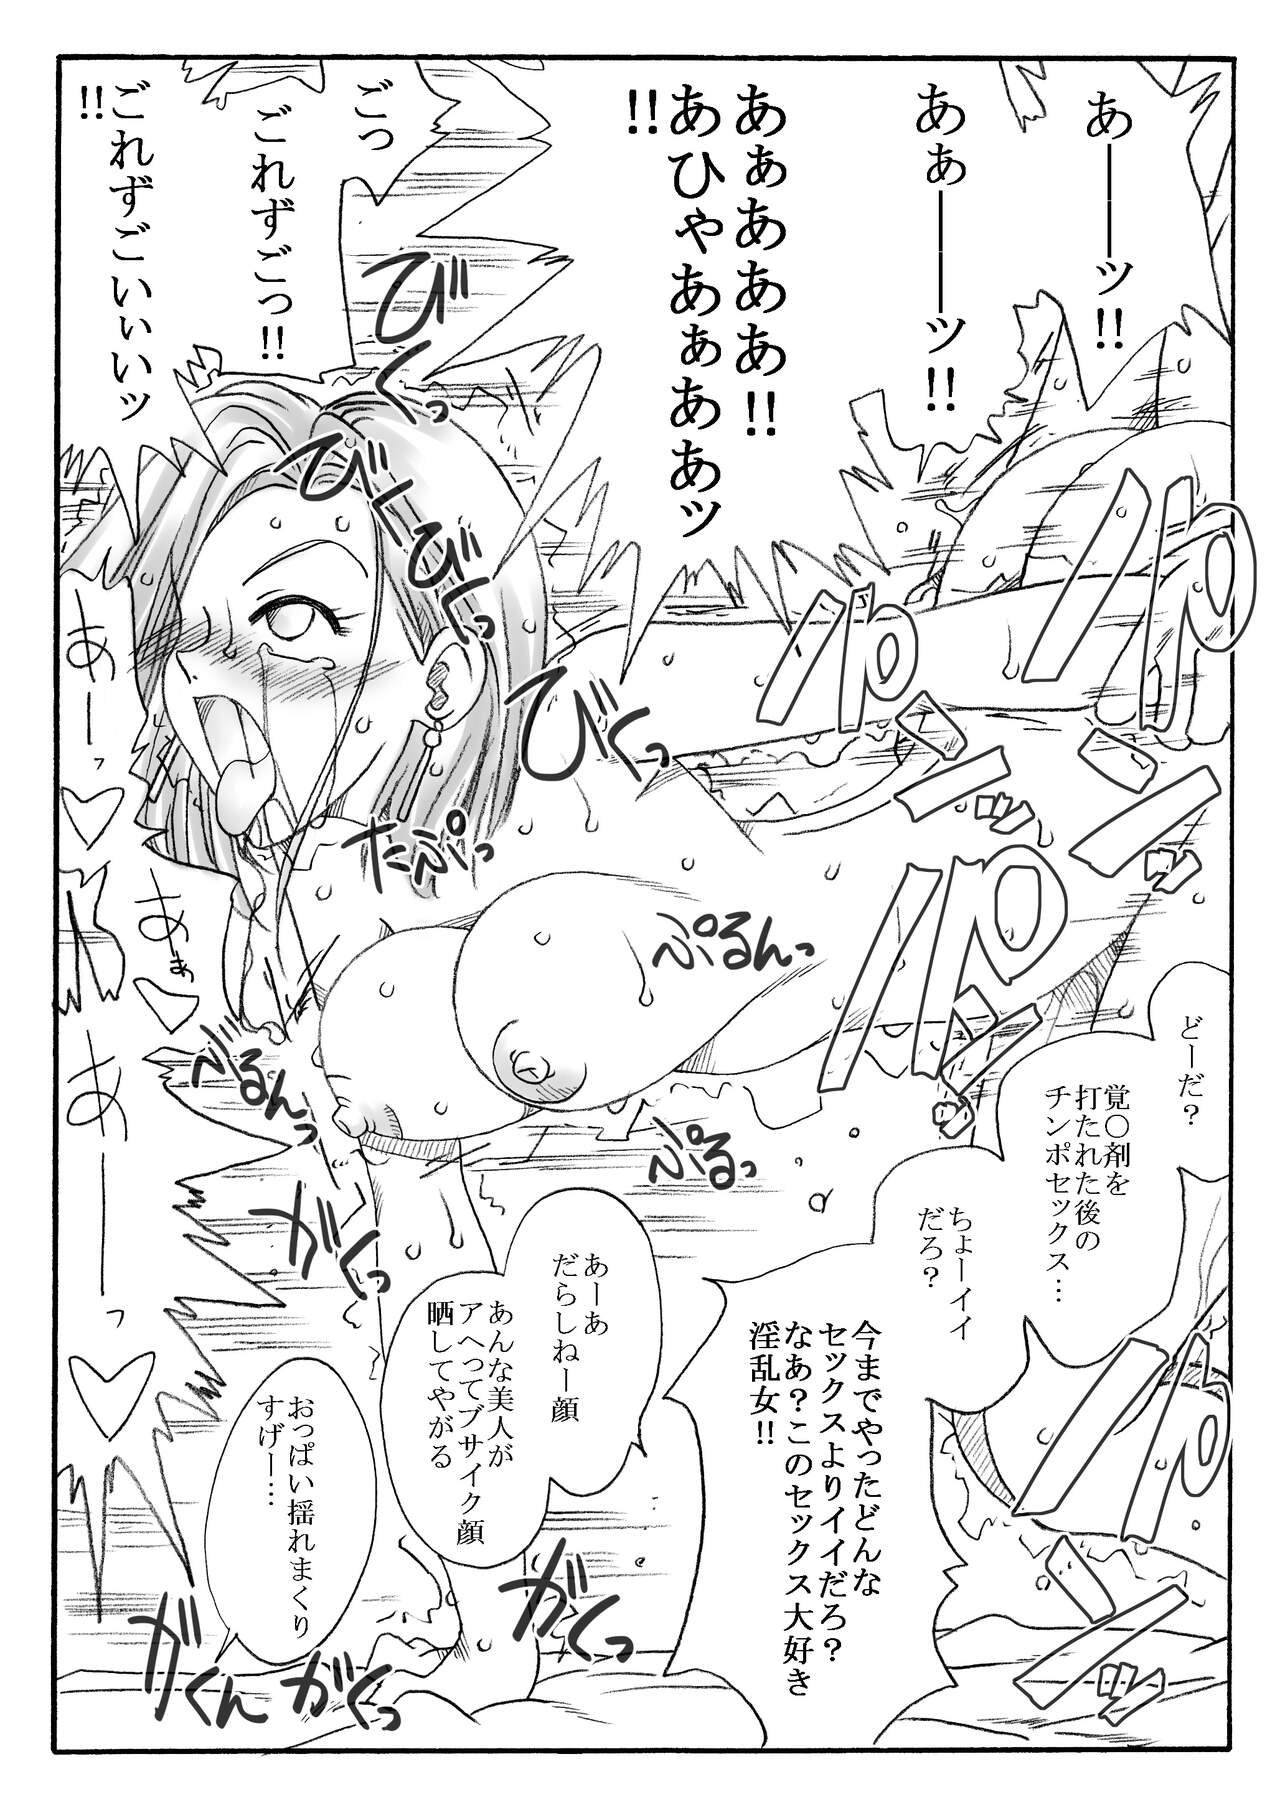 あーーッ!!
あぁーーッ!!
あぁあああ!!
あひゃあぁああッ
!!
ごっ
ごれずごっ!!
ごれずごいぃいッ
!!
びくっ
びーびくっ
びくっ
パン
パンッ
パンッ
たぷっ
ぷるんっ
あーっ
あぁ
あーーっ
べるんっ
がくっ
ぷるっ
どーだ?
覚〇剤を
打たれた後の
チンポセックス…
ちょーイイ
だろ?
今までやったどんな
セックスよりイイだろ?
なあ?このセックス大好き
淫乱女!!
あーあ
だらしねー顔
あんな美人が
アヘってブサイク顔
晒してやがる
おっぱい揺れまくり
すげー…
パンッ
がくっ
がくん
がくっ